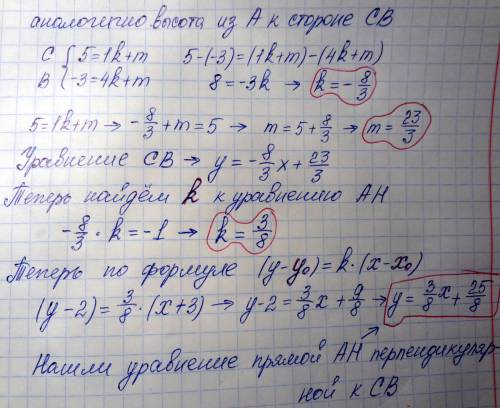 аналогично высота из А к стороне СВ
С { 5=1k+m    5-(-3)=(1k+m)-(4k+m)
В { -3=4k+m    8=-3k → k=-8/3
5=1k+m → -8/3+m=5 → m=5+8/3 → m=23/3
Уравнение СВ → y=-8/3x+23/3
Теперь найдём k к уравнению АН
-8/3·k=-1 → k=3/8
Теперь по формуле (y-y₀)=k·(x-x₀)
(y-2)=3/8·(x+3) → y-2=3/8x+9/8 → y=3/8x+25/8
Нашли уравнение прямой АН перпендикуляр-
ной к СВ